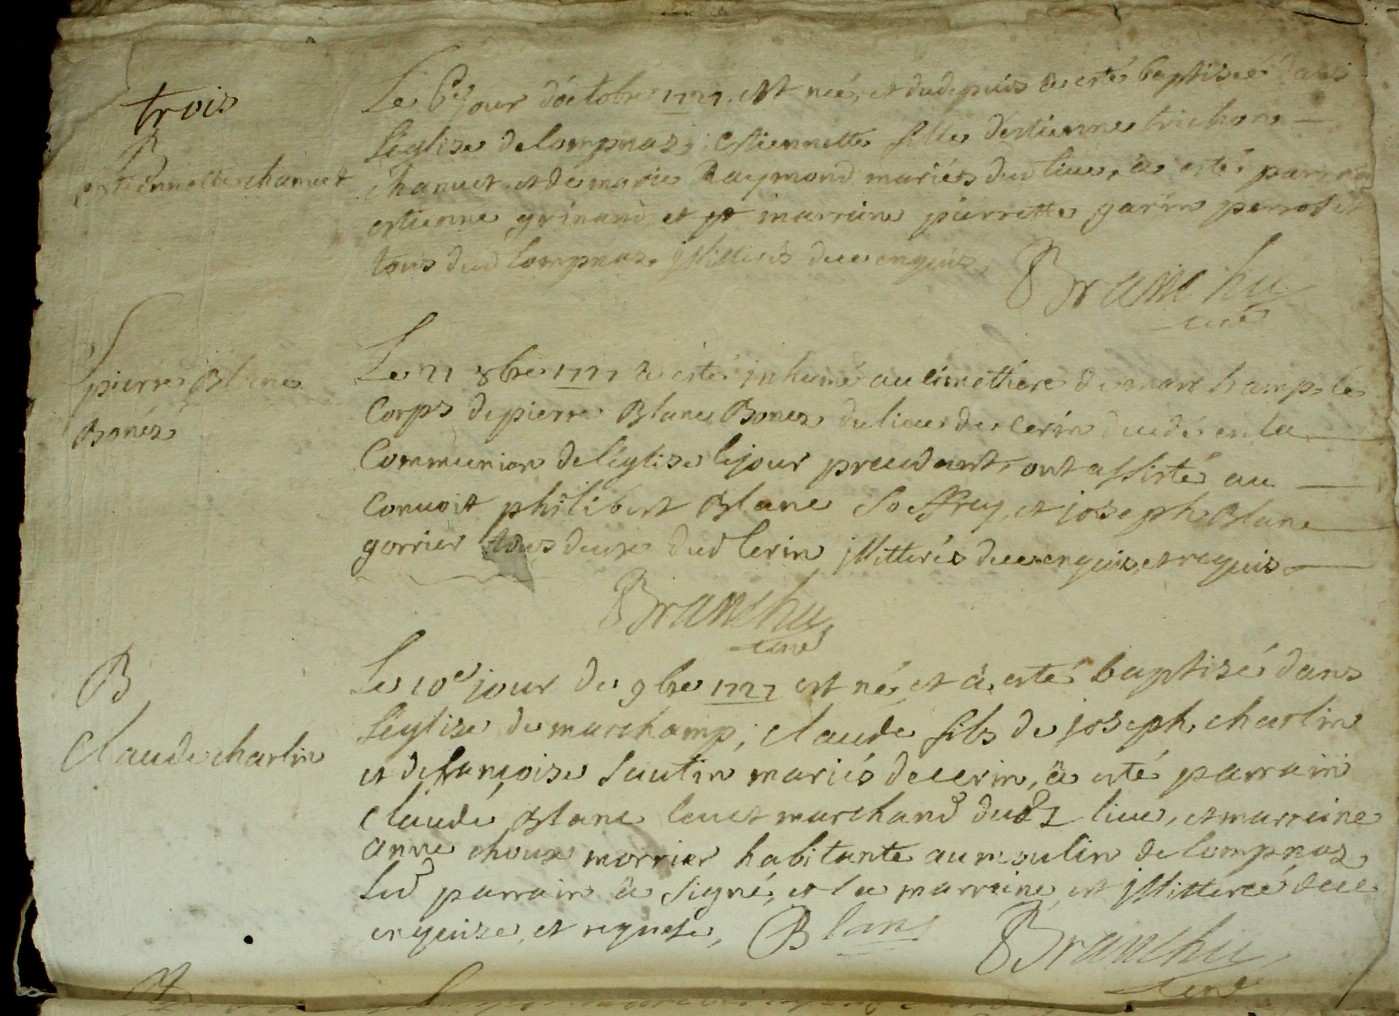 trois
B
estiennette chanuet
Le 6e jour d'octobre 1727 est née, et du depuis a esté baptisée dans
l'eglise de lompnas; estiennette fille d'estienne trichon
chanuet et de marie Raymond mariés dud lieu, a esté parrain
estienne grinand, et marraine pierrette garin perrodet
tous dud lompnas illitterés de ce enquis,
Branchu
curé
S
pierre Blanc
Bonés
Le 21 8bre 1727 a esté inhumé au cimethiere de marchamp le
Corps de pierre Blanc Bones du lieu de cerin decedé en la
Communion de l'église le jour precedant, ont assisté au
Convoit philibert Blanc Joffrey, et joseph Blanc
gorrier tous deux dud Cerin illitterés de ce enquis, et requis
Branchu
curé
B
Claude charlin
Le 10e jour de 9bre 1727 est né, et a esté baptizé dans
l'eglise de marchamp; claude fils de joseph charlin
et de françoise sautin mariés de cerin, a esté parrain
claude Blanc marchand dud lieu, et marraine
anne choux morrier habitante au moulin de lompnas
led parrain a signé, et la marraine est illitterée de ce
enquise, et requise, Blanc
Branchu
curé